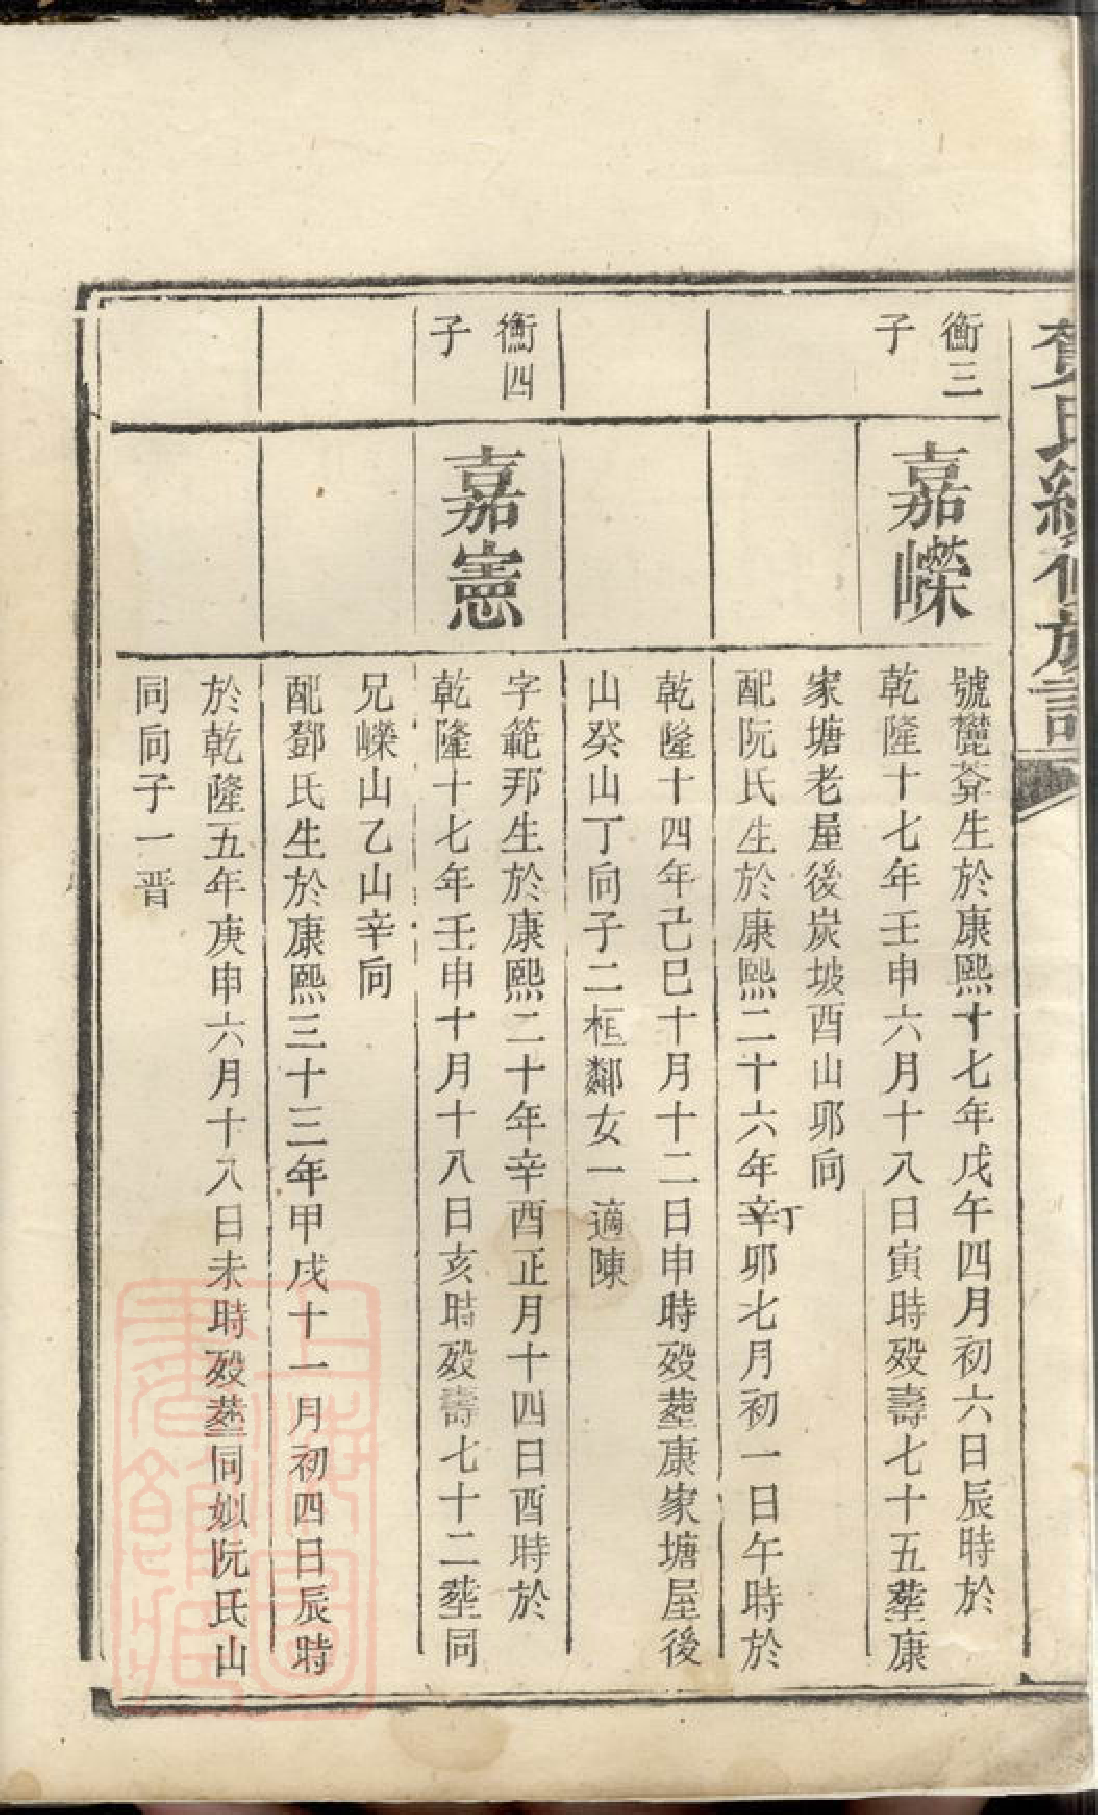 氏續修族譜
衡三
子
嘉嶸
號麓莽生於康熙十七年戊午四月初六日辰時於
乾隆十七年壬申六月十八日寅時殁壽七十五塟康
家塘老屋後炭坡酉山卯向
配阮氏生於康熙二十六年辛卯七月初一日午時於
丁
乾隆十四年己巳十月十二日申時殁塟康家塘屋後
山癸山丁向子二桓鄰女一適陳
衡四
子
嘉憲
字範邦生於康熙二十年辛酉正月十四日酉時於
乾隆十七年壬申十月十八日亥時殁壽七十二塟同
兄嶸山乙山辛向
配鄧氏生於康熙三十三年甲戌十一月初四日辰時
於乾隆五年庚申六月十八日未時殁塟同姒阮氏山
同向子一晋
上海圖書館藏